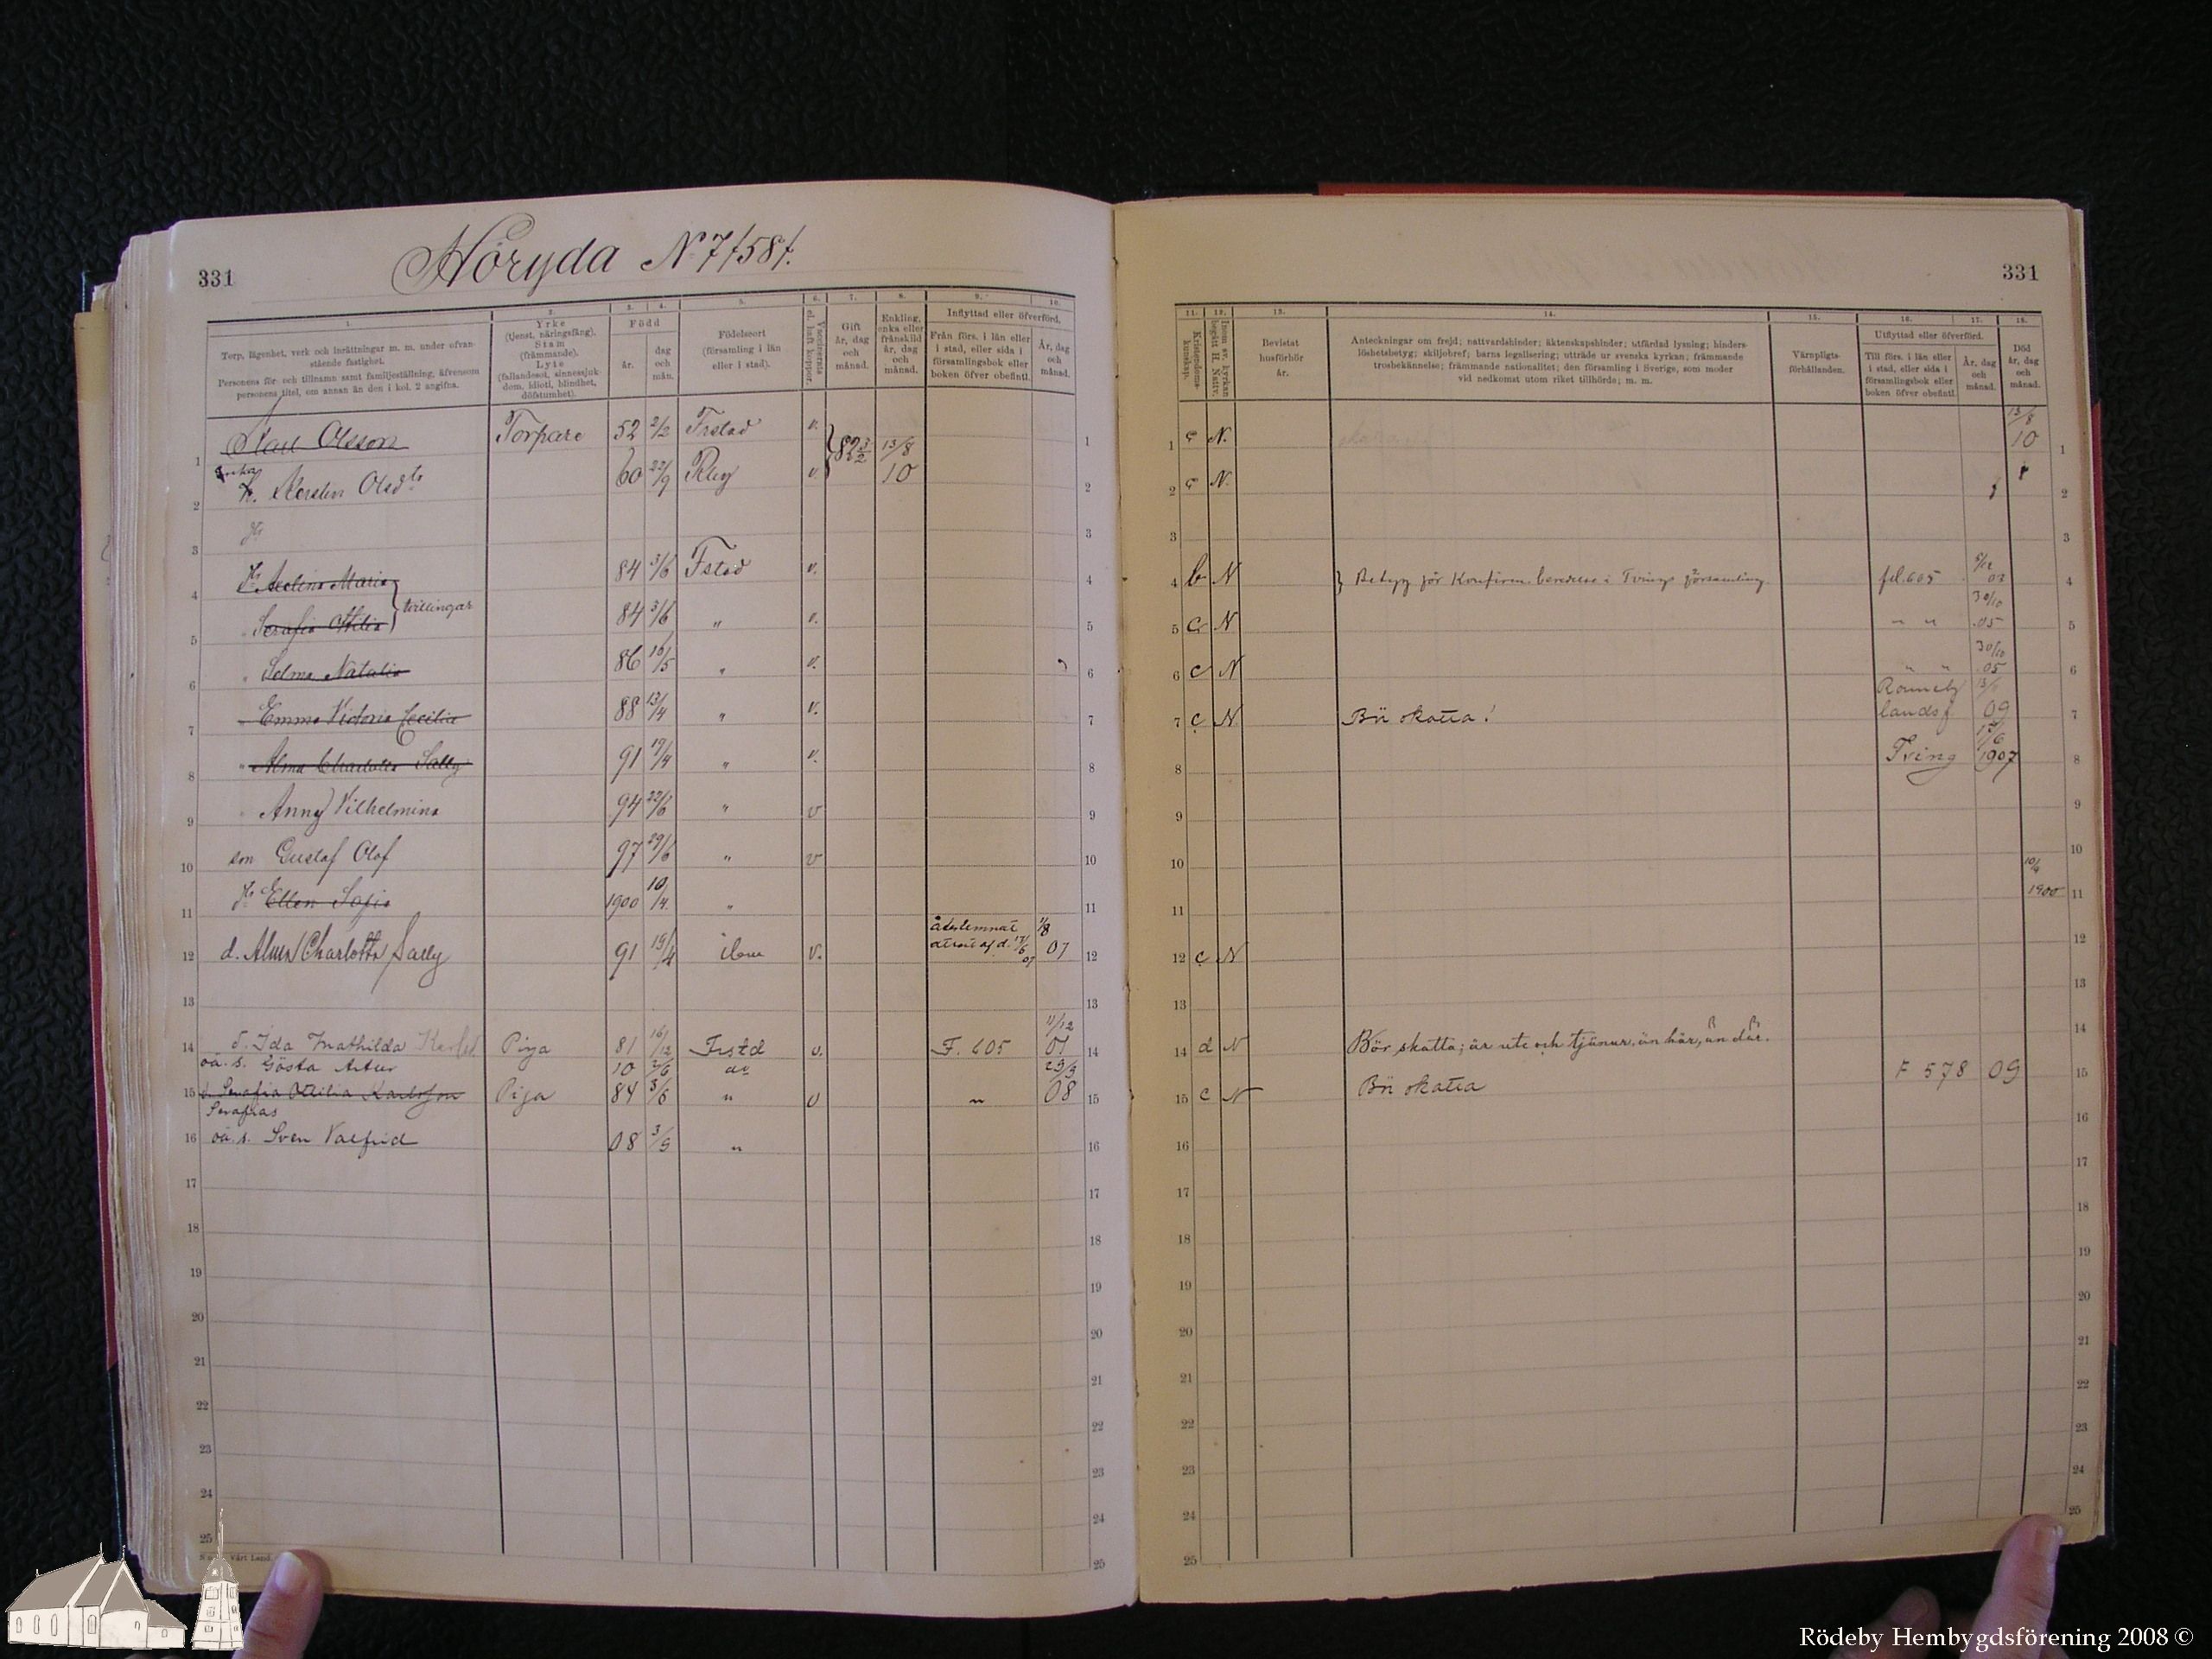 331
Höryda N:7/58/.
1. 2. 3. 4. 5. 6. 7. 8. 9. 10.
Torp, lägenhet, verk och inrättningar m. m. under ofvan-
stående fastighet.
Personens för- och tillnamn samt familjeställning, äfvensom
personens titel, om annan än den i kol. 2 angifna.
Yrke
(tjenst, näringsfång).
Stam
(främmande).
Lyte
(fallandesot, sinnessjuk-
dom, idioti, blindhet,
döfstumhet).
Född
år.
dag
och
mån.
Födelseort
(församling i län
eller i stad).
Vaccinerats
el. haft koppor.
Gift
år, dag
och
månad.
Enkling,
enka eller
frånskild
år, dag
och
månad.
Inflyttad eller öfverförd.
Från förs. i län eller
i stad, eller sida i
församlingsbok eller
boken öfver obefintl.
År, dag
och
månad.
1 Karl Olsson Torpare 52 2/2 Frstad v. 82 13/8 1
2 enka H. Kerstin Olsdtr 60 22/9 v. 10 2
3 3
4 84 3/6 Fstad v. 4
tvillingar
5 Serafia Ottilia 84 3/6 " v. 5
6 " Selma Natalia 86 16/5 " v. 6
7 " Emma Victoria Cecilia 88 13/4 " v. 7
8 " Alma Charlotta Sally 91 19/4 " v. 8
9 " Anny Vilhelmina 94 22/6 " v 9
10 son Gustaf Olof 97 29/6 " v 10
11 Ellen Sofia 1900 10/4. " 11
återlemnat 1/8
12 d. Alma Charlotta Sally 91 19/4 v. 07 12
13 13
11/12
14 d. Ida Mathilda Piga 81 16/12 Frstd v. F. 605 07 14
oä. s. Gösta Artur 10 do
15 d. Serafia Ottilia Karlsson Piga 84 3/6 " v " 08 15
Serafias
16 oä. s. Sven Valfrid 08 3/9 " 16
17 17
18 18
19 19
20 20
21 21
22 22
23 23
24 24
25 25
Vårt Land
331
11. 12. 13. 14. 15. 16. 17. 18.
Kristendoms-
kunskap.
Inom sv. kyrkan
begått H. Nattv.
Bevistat
husförhör
år.
Anteckningar om frejd; nattvardshinder; äktenskapshinder; utfärdad lysning; hinders-
löshetsbetyg; skiljobref; barns legalisering; utträde ur svenska kyrkan; främmande
trosbekännelse; främmande nationalitet; den församling i Sverige, som moder
vid nedkomst utom riket tillhörde; m. m.
Värnpligts-
förhållanden.
Utflyttad eller öfverförd.
Till förs. i län eller
i stad, eller sida i
församlingsbok eller
boken öfver obefintl.
År, dag
och
månad.
Död
år, dag
och
månad.
13/8
1 c N. 10 1
2 c N. 2
3 3
4 b N Betyg för Konfirm. beredelse i Tvings församling fd. 605 02 4
30/10
5 c N " " .05 5
30/10
6 c N " " .05 6
Rönneby
7 c N Bör skatta! landsf 09 7
8 Tving 1907 8
9 9
10 10
10/4
11 1900 11
12 c N 12
13 13
14 d N Bör skatta; är ute och tjänar, än här, än där. 14
15 c N Bör skatta F 578 09 15
16 16
17 17
18 18
19 19
20 20
21 21
22 22
23 23
24 24
25 25
Rödeby Hembygdsförening 2008 ©